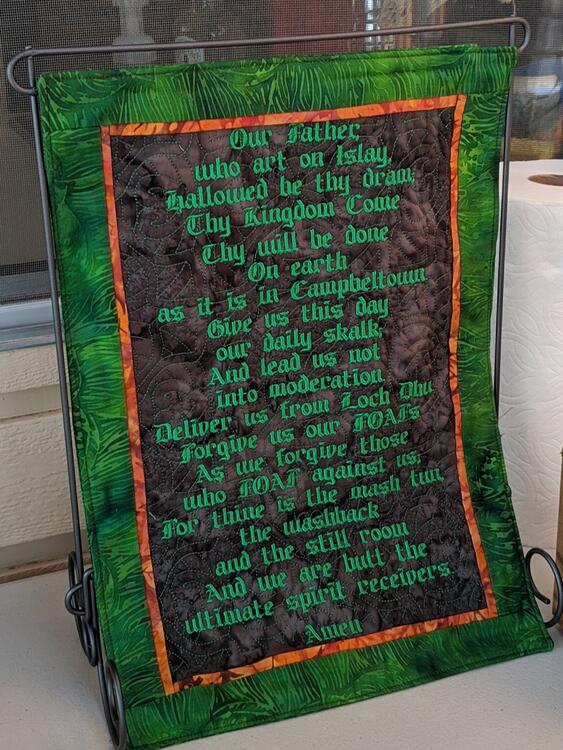 Our Father,
who art on Islay,
Hallowed be thy dram;
Thy Kingdom Come
Thy will be done
On earth
as it is in Campbeltown
Give us this day
our daily skalk;
And lead us not
into moderation
Deliver us from Loch Dhu
Forgive us our FOAFs
As we forgive those
who FOAF against us;
For thine is the mash tun,
the washback
and the still room
And we are butt the
ultimate spirit receivers
Amen